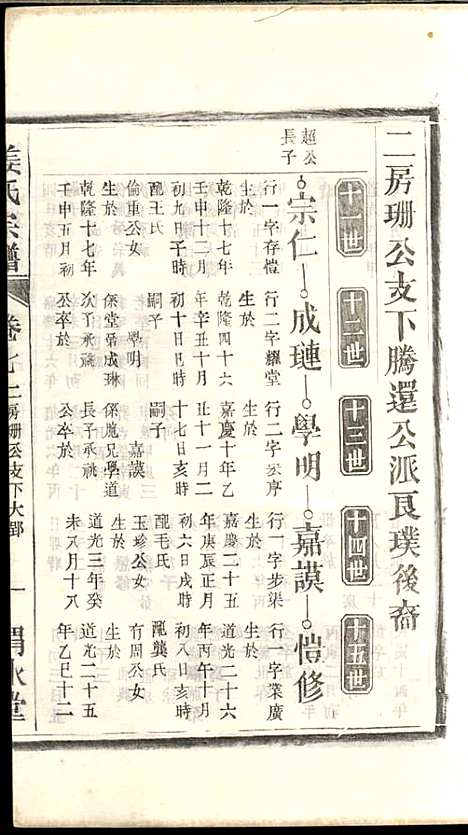 二房珊公支下騰還公派艮璞後裔
十一世
十二世
十三世
十四世
十五世
超公
長子
宗仁
成璉
學明
嘉謨
愷修
行一字存愷
生於
乾隆十七年
壬申十二月
初九日子時
配王氏
倫重公女
生於
乾隆十七年
壬申五月初
行二字耀堂
生於
乾隆四十六
年辛丑十月
初十日巳時
嗣子
學明
係堂弟成琳
次子承祧
公卒於
行二字宏序
生於
嘉慶十年乙
丑十一月二
十七日亥時
嗣子
嘉謨
係胞兄學道
長子承祧
公卒於
行一字步渠
生於
嘉慶二十五
年庚辰正月
初六日戌時
配毛氏
玉珍公女
生於
道光三年癸
未八月十八
行一字業廣
生於
道光二十六
年丙午十月
初八日亥時
配龔氏
冇周公女
生於
道光二十五
年乙巳十二
姜氏宗譜
卷七二房珊公支下大郢
一
渭水堂